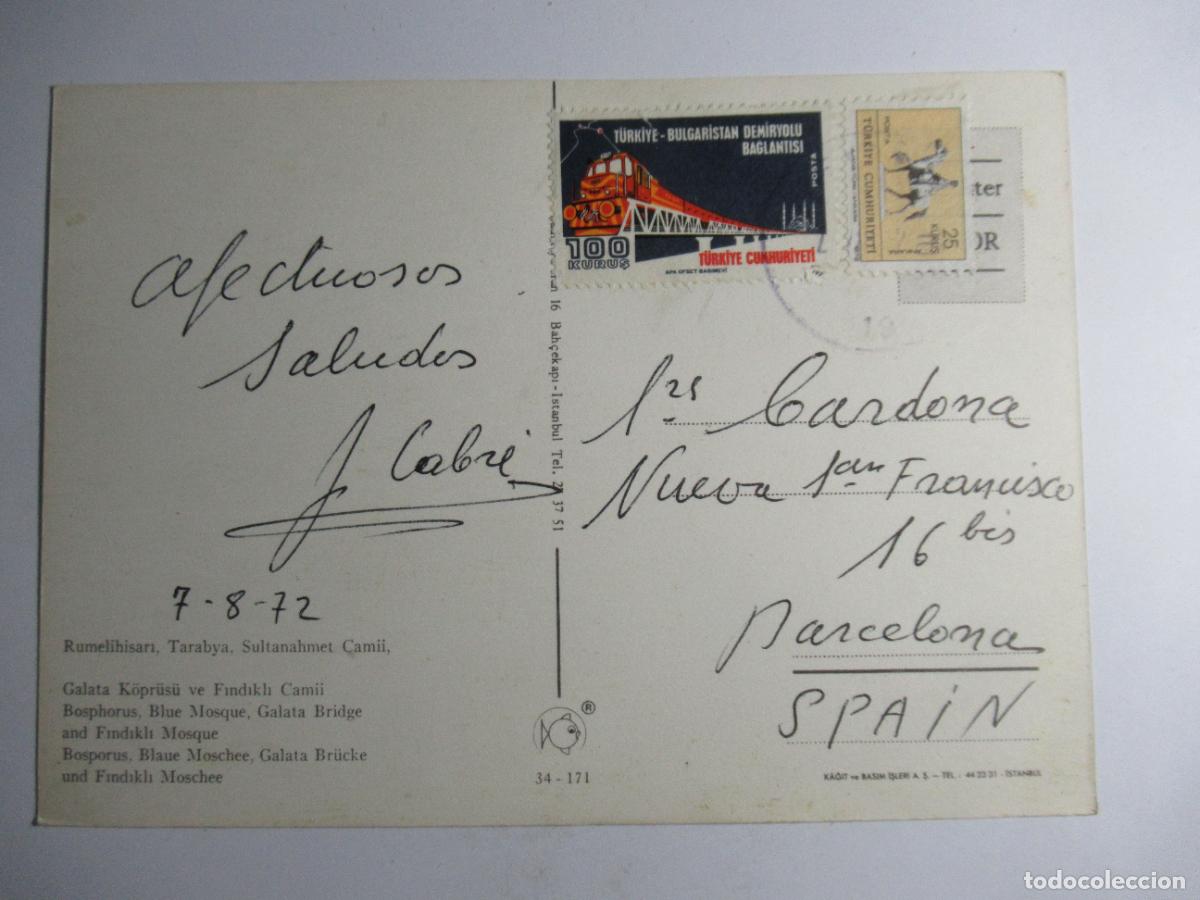 Afectuosos
Saludos
J. Cabré
7-8-72
Rumelihisarı, Tarabya, Sultanahmet Camii,
Galata Köprüsü ve Fındıklı Camii
Bosphorus, Blue Mosque, Galata Bridge
and Fındıklı Mosque
Bosporus, Blaue Moschee, Galata Brücke
und Fındıklı Moschee
16 Bahçekapı - Istanbul Tel. 37 51
®
34 - 171
TÜRKİYE - BULGARİSTAN DEMİRYOLU
BAGLANTISI
POSTA
100
KURUŞ
TÜRKİYE CUMHURİYETİ
APA OFSET BASIMEVİ
POSTA
TÜRKİYE CUMHURİYETİ
25
KURUŞ
ANKARA
ter
OR
19
Srs Cardona
Nueva San Francisco
16 bis
Barcelona
SPAIN
KÂĞIT ve BASIM İŞLERİ A. Ş. — TEL : 44 23 31 - ISTANBUL
todocoleccion